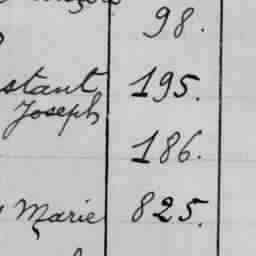 98.
stant 195.
Joseph
186.
Marie 825.